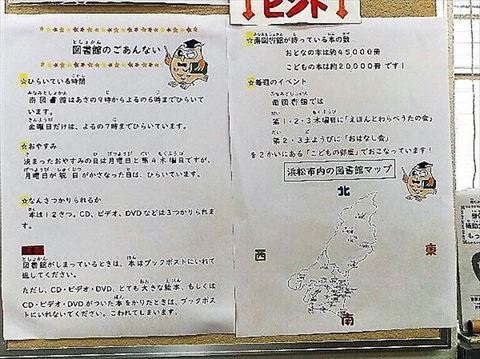 ヒント
図書館のごあんない
☆ひらいている時間
南図書館はあさの9時からよるの6時までひらいて
います。
金曜日だけは、よるの7時までひらいています。
☆おやすみ
決まったおやすみの日は月曜日と第4木曜日ですが、
月曜日が祝日がかさなった日は、ひらいています。
☆なんさつかりられるか
本は12さつ、CD、ビデオ、DVDなどは3つかりられま
す。
図書館がしまっているときは、本はブックポストにいれて
返してください。
ただし、CD・ビデオ・DVD、とても大きな絵本、もしくは
CD・ビデオ・DVDがついた本をかりたときは、ブックポス
トにいれないでください。こわれてしまいます。
☆南図書館が持っている本の数
おとなの本は約45000冊
こどもの本は約20000冊です！
☆毎週のイベント
南図書館では
第1・2・3木曜日に「えほんとわらべうたの会」
第2・3土ようびに「おはなし会」
を2かいにある「こどもの部屋」でおこなっています！
浜松市内の図書館マップ
北
西
東
南